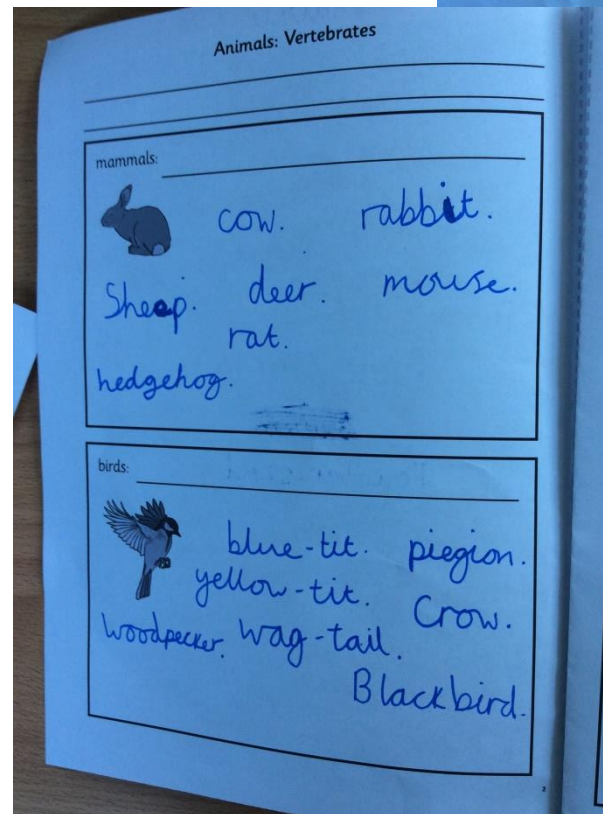 Animals: Vertebrates
mammals:
cow. rabbit.
Sheep. deer. mouse.
rat.
hedgehog.
birds:
blue-tit. piegion.
yellow-tit. Crow.
Woodpecker. wag-tail.
Blackbird.
2